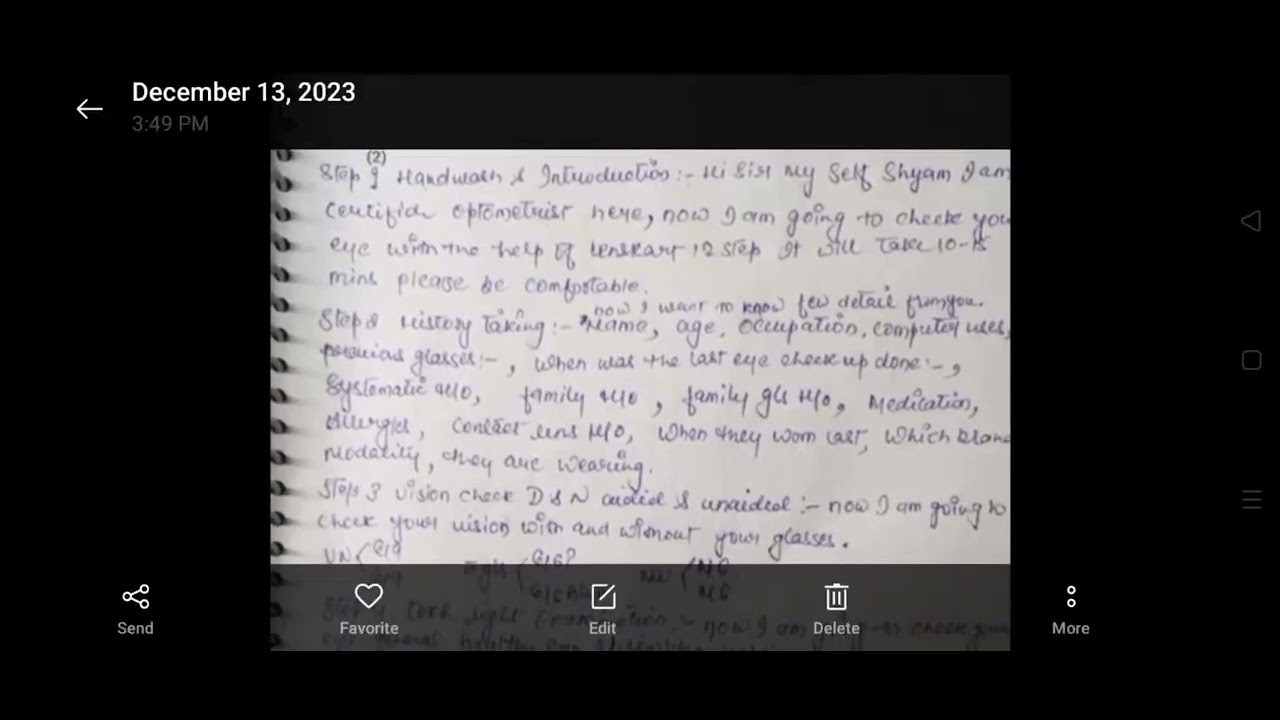 December 13, 2023
3:49 PM
(2)
Step 1 Handwash & Introduction:- Hi Sir My Self Shyam I am
Certifide optometrist here, now I am going to checke you
eye with the help of lenskart 12 step It will take 10-15
mins please be comfortable.
now I want to know few detail from you.
Step 2 History taking:- Name, age, occupation, computer uses,
previous glasses:-, when was the last eye check up done:-,
Systematic H/O, family H/O, family gls H/O, Medication,
Allergies, Contact lens H/O, when they worn last, which brand
Modality, they are wearing.
Step 3 vision check D & N aided & unaided:- now I am going to
check your vision with and without your glasses.
Step 4 Torch light :- now I am to check your
Send
Favorite
Edit
Delete
More